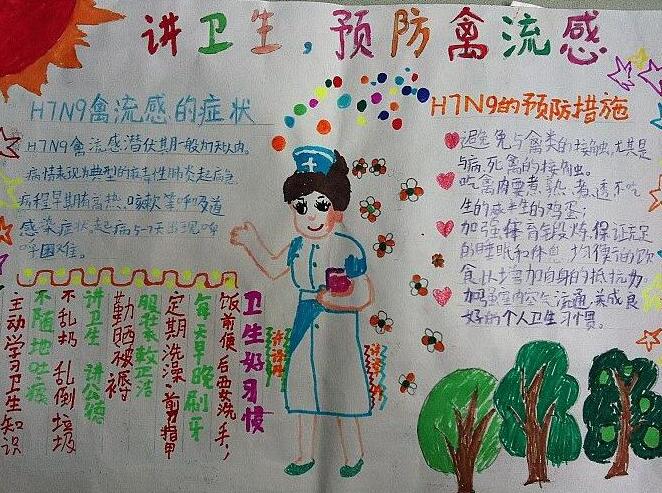 讲卫生,预防禽流感
H7N9禽流感的症状
H7N9禽流感潜伏期一般为7天以内。
病情表现为典型的病毒性肺炎起病急
病程早期有高热、咳嗽等呼吸道
感染症状,起病5-7天出现呼
呼困难。
H7N9的预防措施
避免与禽类的接触,尤其是
与病、死禽的接触。
吃禽肉要煮熟、煮透不吃
生的或半生的鸡蛋;
加强体育锻炼,保证充足
的睡眠和休息,均衡的饮
食以增加自身的抵抗力。
加强室内空气流通,养成良
好的个人卫生习惯。
卫生好习惯
饭前便后要洗手,
每天早晚刷牙
定期洗澡、剪指甲
服装整洁
勤晒被褥
讲卫生 讲公德
不乱扔 乱倒垃圾
不随地吐痰
主动学习卫生知识